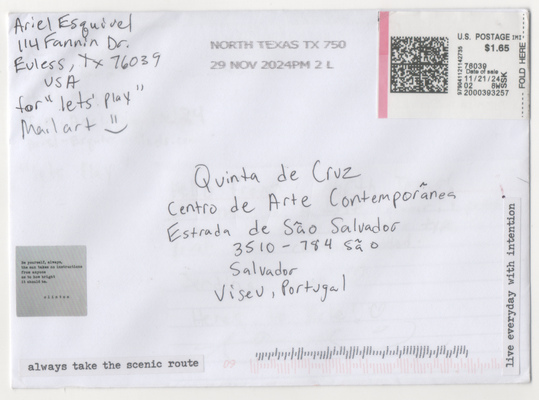 Ariel Esquivel
114 Fannin Dr.
Euless, Tx 76039
USA
for "lets' play"
Mail art
NORTH TEXAS TX 750
29 NOV 2024PM 2 L
U.S. POSTAGE IMI
$1.65
76039
Date of sale
11/21/24
02 6W
2000393257
FOLD HERE
Quinta de Cruz
Centro de Arte Contemporânea
Estrada de São Salvador
3510-784 São
Salvador
Viseu, Portugal
Be yourself, always.
always take the scenic route
live everyday with intention